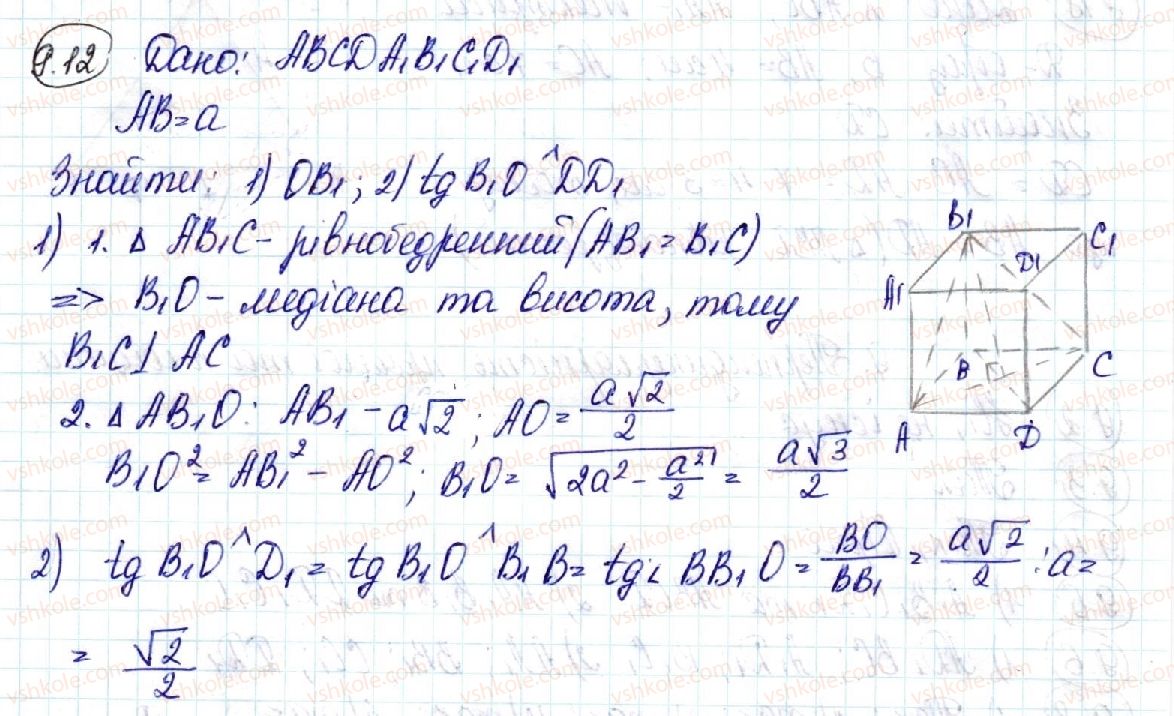 9.12 Дано: ABCDA₁B₁C₁D₁
AB=a
Знайти: 1) OB₁; 2) tg B₁O ^ DD₁
1) 1. △ AB₁C - рівнобедренний (AB₁ = B₁C)
=> B₁O - медіана та висота, тому
B₁C ⊥ AC
2. △ AB₁O: AB₁ - a√2; AO = a√2/2
B₁O² = AB₁² - AO²; B₁O = √(2a² - a²/2) = a√3/2
2) tg B₁O ^ D₁ = tg B₁O ^ B₁B = tg < BB₁O = BO/BB₁ = a√2/2 : a =
= √2/2
B₁
C₁
D₁
A₁
B
C
A
D
vshkole.com